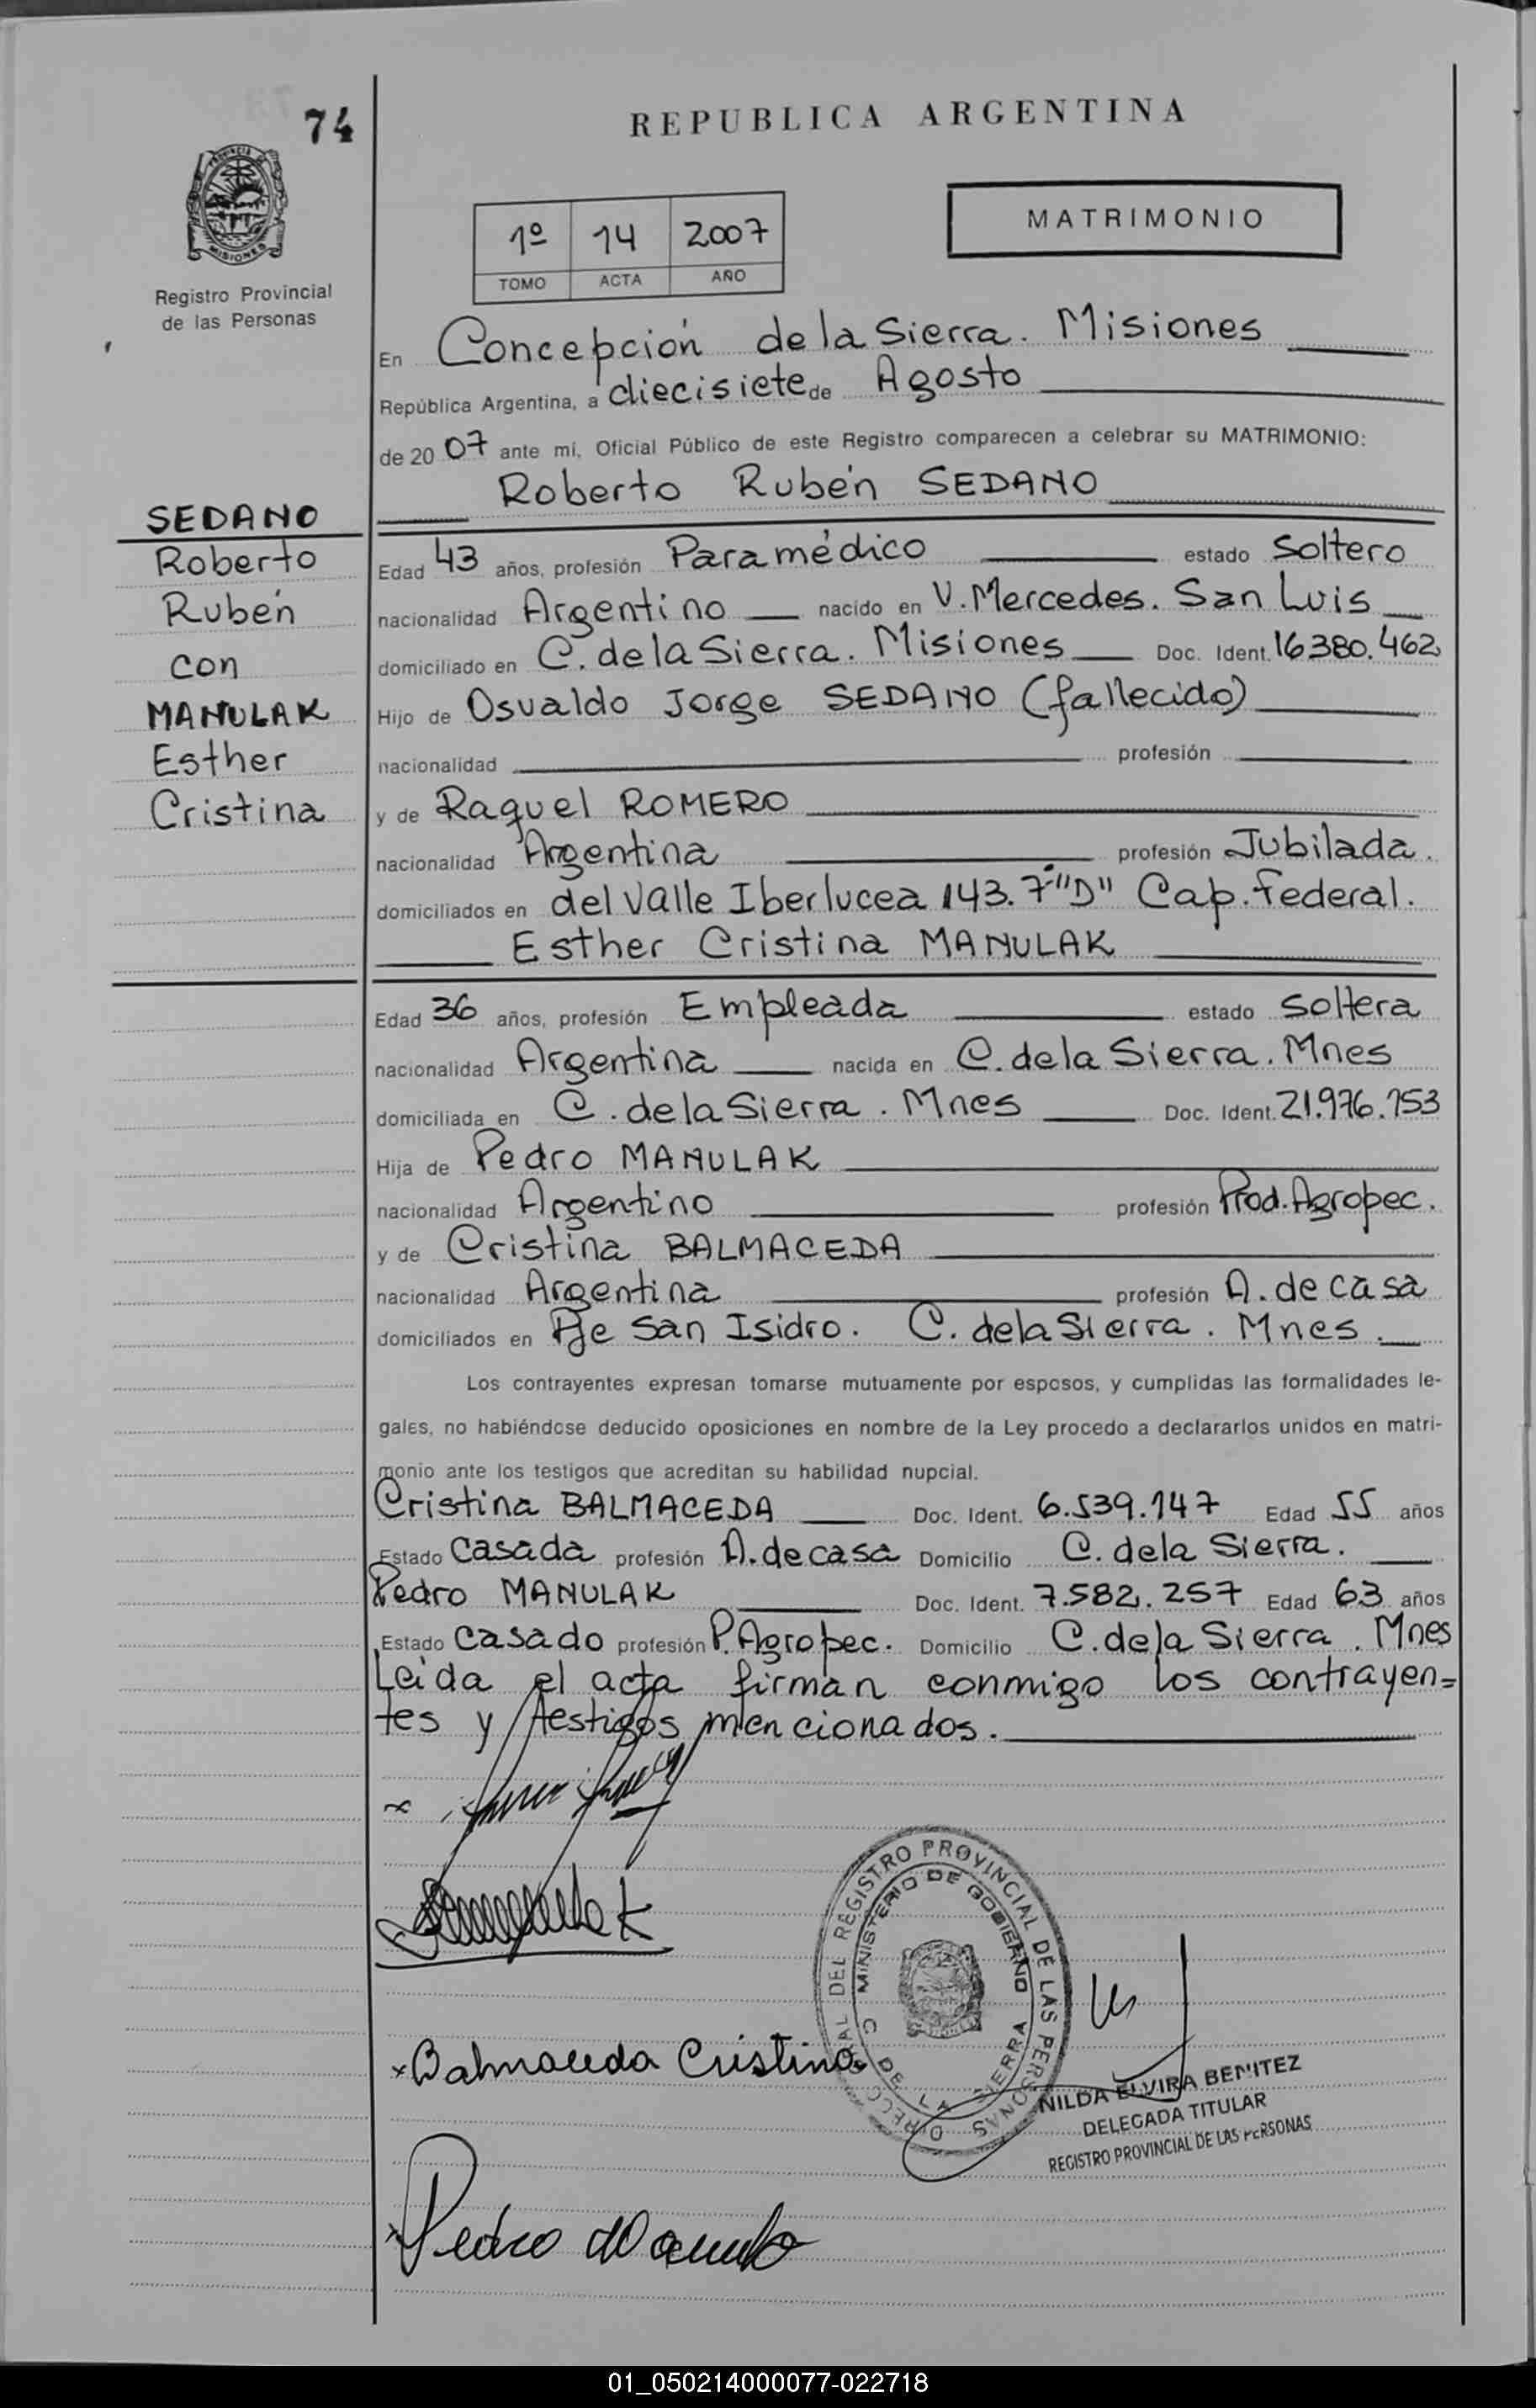 74
REPUBLICA ARGENTINA
PROVINCIA DE MISIONES
Registro Provincial
de las Personas
1º 14 2007
TOMO ACTA AÑO
MATRIMONIO
En Concepción de la Sierra. Misiones
República Argentina, a diecisiete de Agosto
de 2007 ante mí, Oficial Público de este Registro comparecen a celebrar su MATRIMONIO:
Roberto Rubén SEDANO
SEDANO
Roberto
Rubén
con
MANULAK
Esther
Cristina
Edad 43 años, profesión Paramédico estado Soltero
nacionalidad Argentino nacido en V. Mercedes. San Luis
domiciliado en C. de la Sierra. Misiones Doc. Ident. 16380.462
Hijo de Osvaldo Jorge SEDANO (fallecido)
nacionalidad profesión
y de Raquel ROMERO
nacionalidad Argentina profesión Jubilada.
domiciliados en del Valle Iberlucea 143. 7º "D" Cap. Federal.
Esther Cristina MANULAK
Edad 36 años, profesión Empleada estado Soltera
nacionalidad Argentina nacida en C. de la Sierra. Mnes
domiciliada en C. de la Sierra. Mnes Doc. Ident. 21.976.753
Hija de Pedro MANULAK
nacionalidad Argentino profesión Prod. Agropec.
y de Cristina BALMACEDA
nacionalidad Argentina profesión A. de casa
domiciliados en Pje San Isidro. C. de la Sierra. Mnes.
Los contrayentes expresan tomarse mutuamente por esposos, y cumplidas las formalidades le-
gales, no habiéndose deducido oposiciones en nombre de la Ley procedo a declararlos unidos en matri-
monio ante los testigos que acreditan su habilidad nupcial.
Cristina BALMACEDA Doc. Ident. 6.539.147 Edad 55 años
Estado Casada profesión A. de casa Domicilio C. de la Sierra.
Pedro MANULAK Doc. Ident. 7.582.257 Edad 63 años
Estado Casado profesión P. Agropec. Domicilio C. de la Sierra. Mnes
Leída el acta firman conmigo los contrayen=
tes y testigos mencionados.
DIRECCIÓN PROVINCIAL DEL REGISTRO PROVINCIAL DE LAS PERSONAS
MINISTERIO DE GOBIERNO
C DE LA SIERRA
x Balmaceda Cristina
NILDA ELVIRA BENITEZ
DELEGADA TITULAR
REGISTRO PROVINCIAL DE LAS PERSONAS
x Pedro Manulak
01_050214000077-022718